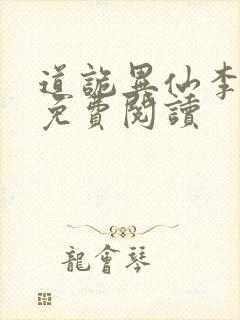 道詭異仙李
免費閱讀
龍會琴